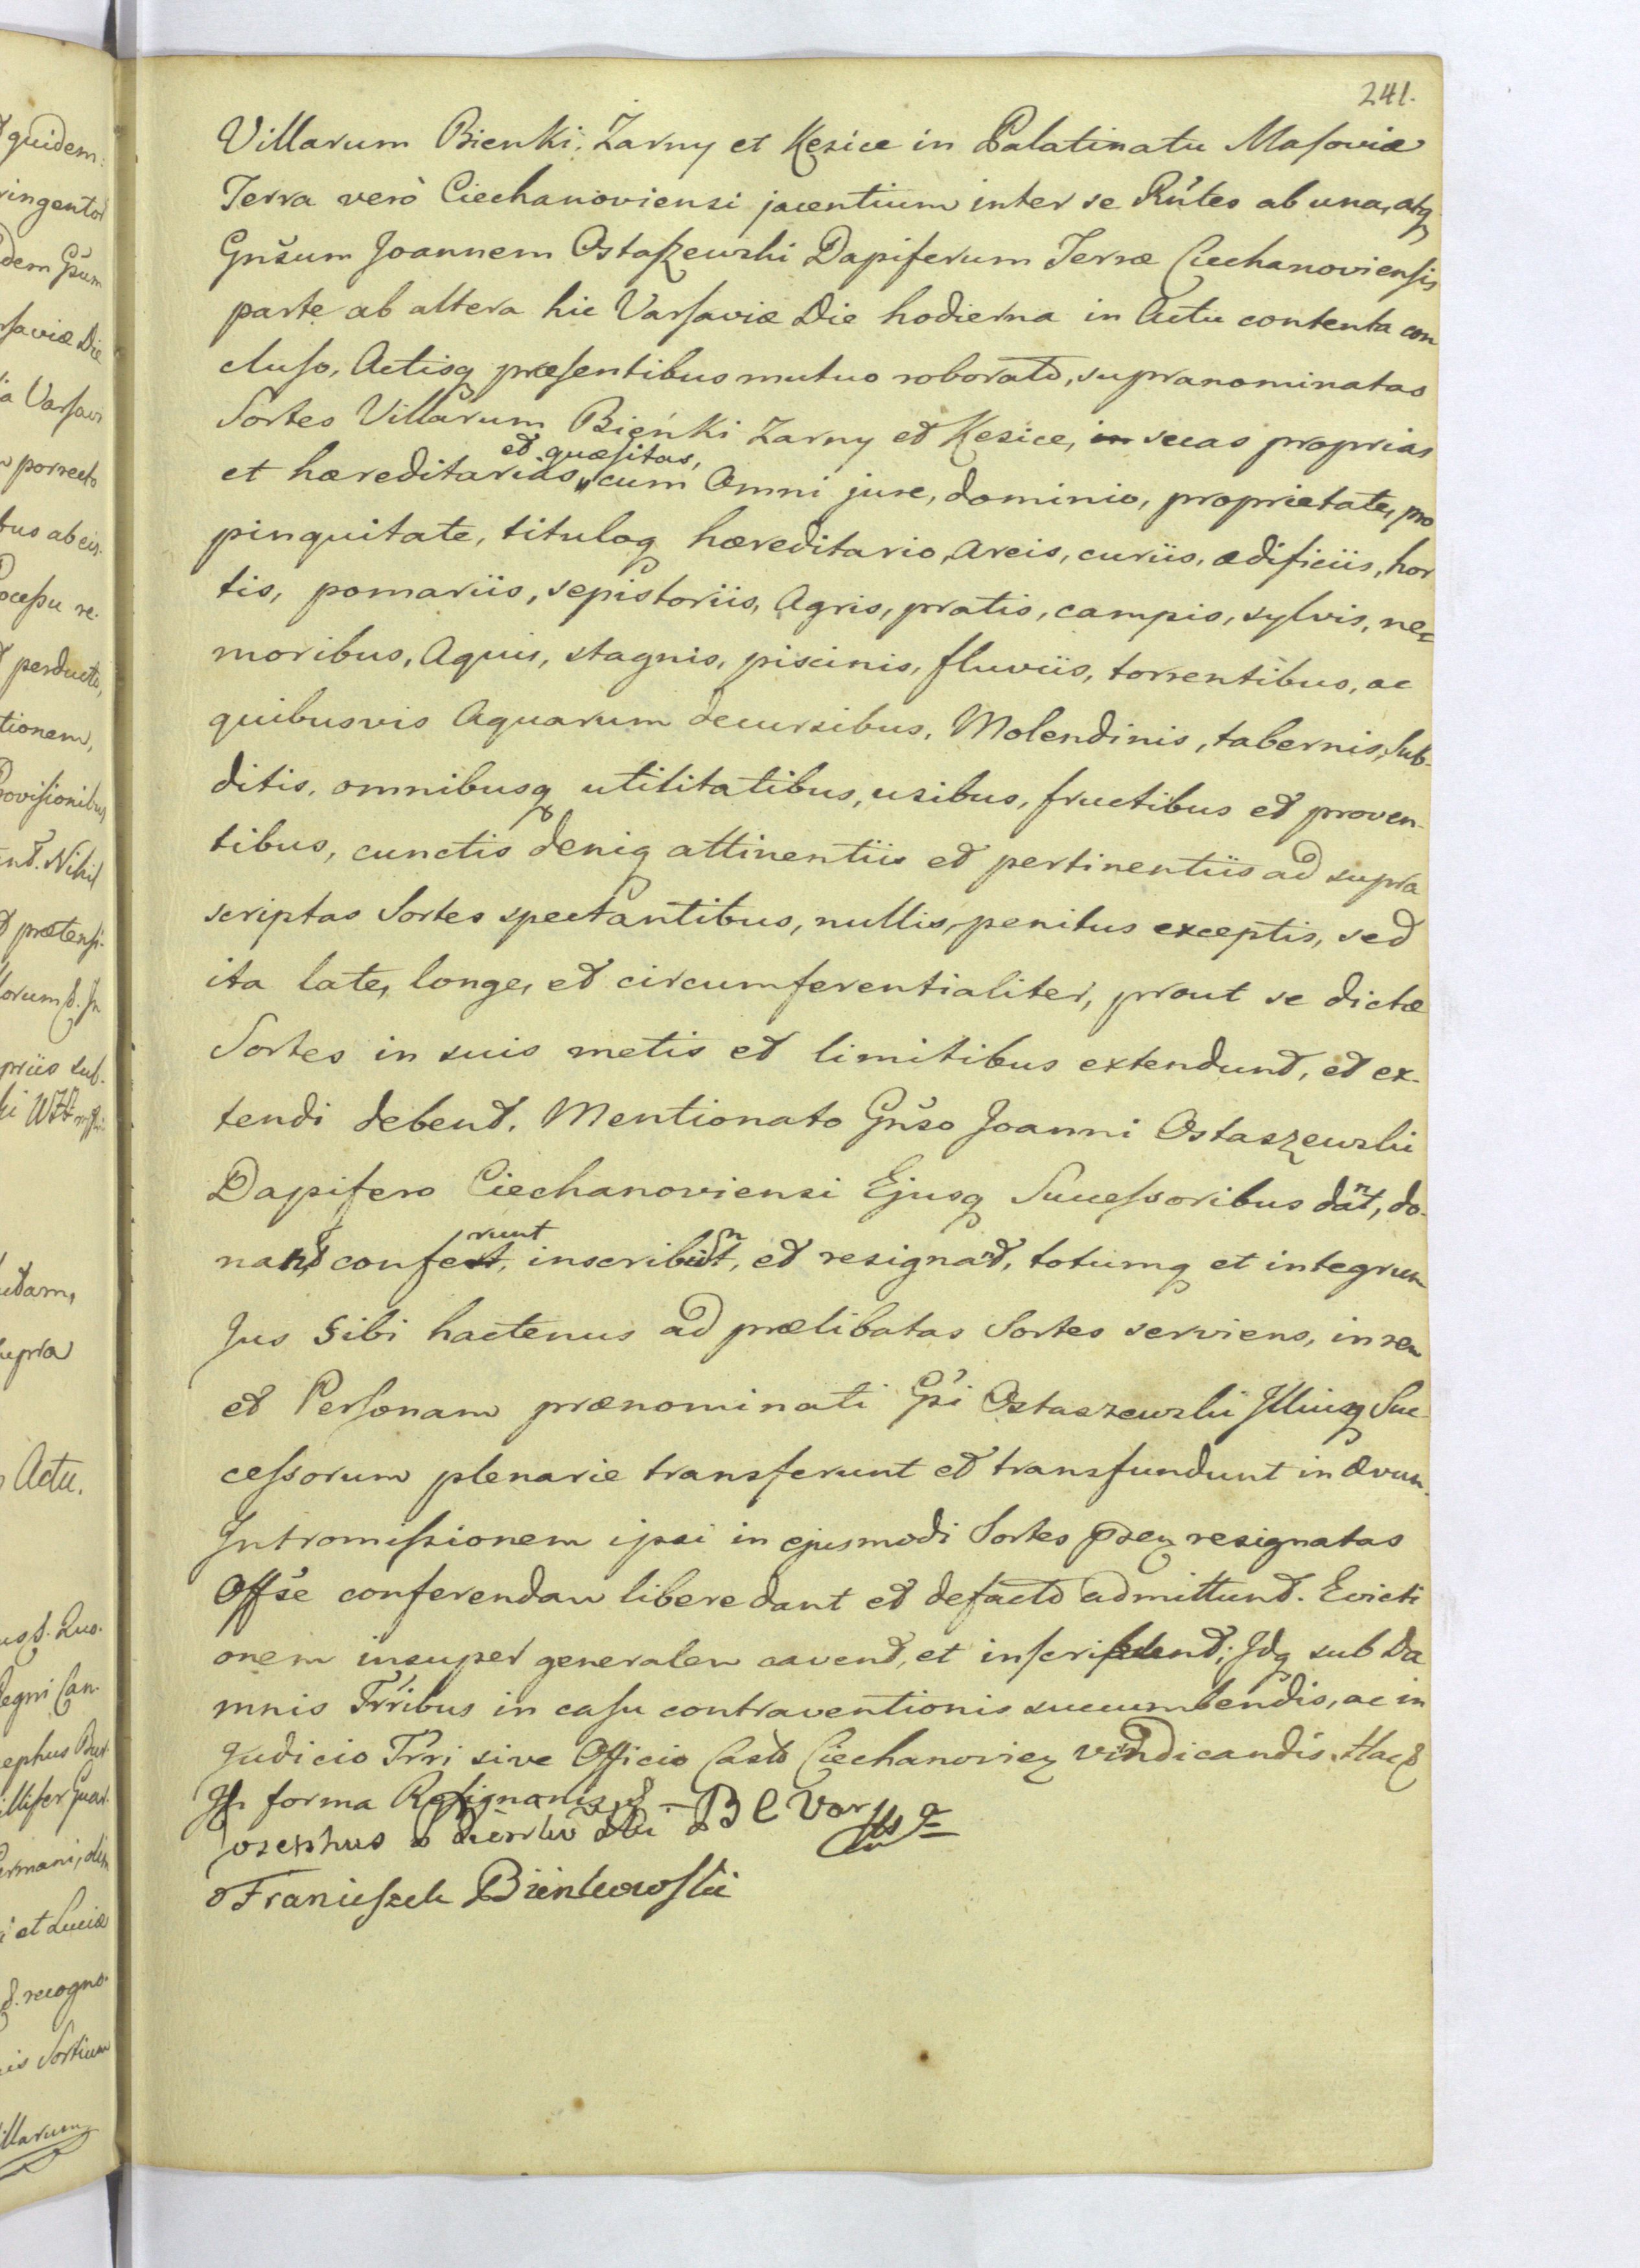 241.
Villarum Bienki, Żarny et Kęzice in Palatinatu Masoviæ
Terra verò Ciechanoviensi jacentium inter se Rñtes ab una, atq
Gñsum Joannem Ostaszewski Dapiferum Terræ Ciechanoviensis
parte ab altera hic Varsaviæ Die hodierna in Actu contenta con
cluso, Actisq præsentibus mutuo roborato, supranominatas
Sortes Villarum Bieńki Zarny et Kęzice, in suas proprias
et quæsitas,
et hæreditarias, cum Omni jure, dominio, proprietate, pro
pinquitate, tituloq hæreditario, areis, curiis, ædificiis, hor
tis, pomariis, sepistoriis, Agris, pratis, campis, sylvis, ne=
moribus, Aquis, stagnis, piscinis, fluviis, torrentibus, ac
quibusvis Aquarum decursibus, Molendinis, tabernis, Sub-
ditis, omnibusq utilitatibus, usibus, fructibus et proven-
tibus, cunctis deniq attinentiis et pertinentiis ad supra
scriptas Sortes spectantibus, nullis, penitus exceptis, sed
ita late, longe, et circumferentialiter, prout se dictæ
Sortes in suis metis et limitibus extendunt, et ex-
tendi debent. Mentionato Gñso Joanni Ostaszewski
Dapifero Ciechanoviensi Ejusq Successoribus dant, do-
nant, conferunt, inscribunt, et resignant, totumq et integrum
Jus sibi hactenus ad prælibatas Sortes serviens, in rem
et Personam prænominati Gsi Ostaszewski Illiusq Suc-
cessorum plenarie transferunt et transfundunt in ævum.
Intromissionem ipsi in ejusmodi Sortes resignatas
Offse conferendam libere dant et defacto admittunt. Evicti
onem insuper generalem cavent, et inscribunt; Idq sub Da
mnis Trribus in casu contraventionis succumbendis, ac in
Judicio Trri sive Officio Casto Ciechanovien vindicandis. Hac
In forma Resignanis &. - B C Var
Josephus
Franciszek Bienkowski